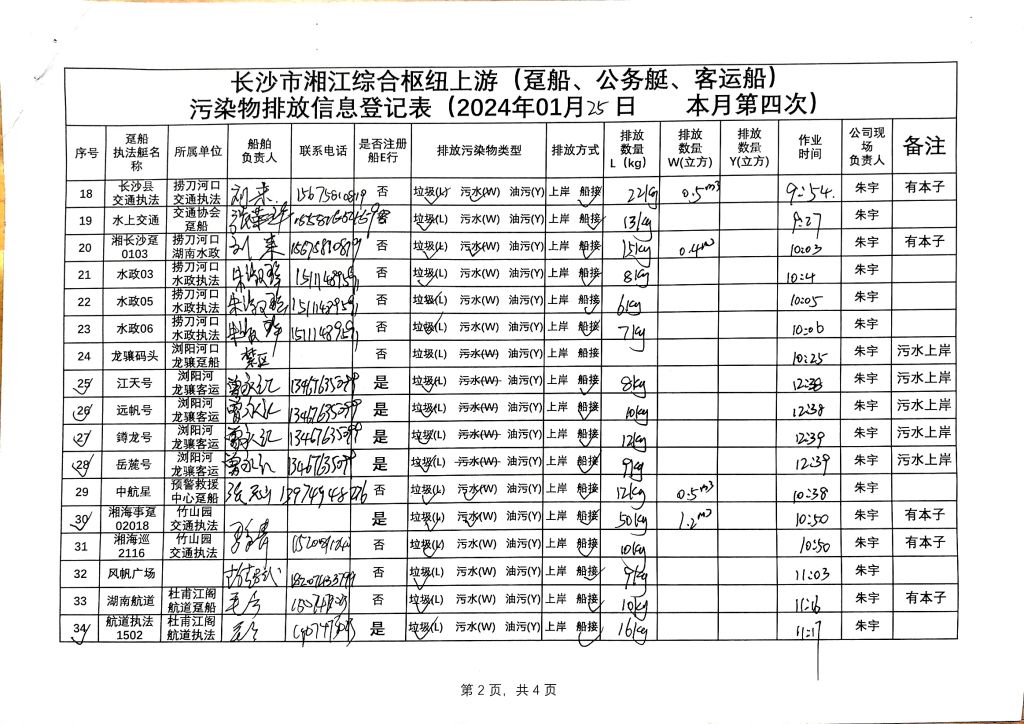 长沙市湘江综合枢纽上游（趸船、公务艇、客运船）
污染物排放信息登记表（2024年01月25日 本月第四次）
序号 趸船执法艇名称 所属单位 船舶负责人 联系电话 是否注册船E行 排放污染物类型 排放方式 排放数量L（kg） 排放数量W(立方) 排放数量Y(立方) 作业时间 公司现场负责人 备注
18 长沙县交通执法 捞刀河口交通执法 否 垃圾(L) 污水(W) 油污(Y) 上岸 船接 22kg 0.5m3 9:54 朱宇 有本子
19 水上交通 交通协会趸船 否 垃圾(L) 污水(W) 油污(Y) 上岸 船接 13kg 9:27 朱宇
20 湘长沙趸0103 捞刀河口湖南水政 否 垃圾(L) 污水(W) 油污(Y) 上岸 船接 15kg 10:03 朱宇 有本子
21 水政03 捞刀河口水政执法 否 垃圾(L) 污水(W) 油污(Y) 上岸 船接 8kg 10:4 朱宇
22 水政05 捞刀河口水政执法 否 垃圾(L) 污水(W) 油污(Y) 上岸 船接 6kg 10:05 朱宇
23 水政06 捞刀河口水政执法 否 垃圾(L) 污水(W) 油污(Y) 上岸 船接 7kg 10:06 朱宇
24 龙骧码头 浏阳河口龙骧趸船 否 垃圾(L) 污水(W) 油污(Y) 上岸 船接 10:25 朱宇 污水上岸
25 江天号 浏阳河龙骧客运 是 垃圾(L) 污水(W) 油污(Y) 上岸 船接 8kg 朱宇 污水上岸
26 远帆号 浏阳河龙骧客运 是 垃圾(L) 污水(W) 油污(Y) 上岸 船接 10kg 12:38 朱宇 污水上岸
27 鐏龙号 浏阳河龙骧客运 是 垃圾(L) 污水(W) 油污(Y) 上岸 船接 12kg 12:39 朱宇 污水上岸
28 岳麓号 浏阳河龙骧客运 是 垃圾(L) 污水(W) 油污(Y) 上岸 船接 9kg 12:39 朱宇 污水上岸
29 中航星 预警救援中心趸船 否 垃圾(L) 污水(W) 油污(Y) 上岸 船接 12kg 0.5m3 10:38 朱宇
30 湘海事趸02018 竹山园交通执法 是 垃圾(L) 污水(W) 油污(Y) 上岸 船接 50kg 1.2m3 10:50 朱宇 有本子
31 湘海巡2116 竹山园交通执法 否 垃圾(L) 污水(W) 油污(Y) 上岸 船接 10kg 10:50 朱宇 有本子
32 风帆广场 否 垃圾(L) 污水(W) 油污(Y) 上岸 船接 9kg 11:03 朱宇
33 湖南航道 杜甫江阁航道趸船 否 垃圾(L) 污水(W) 油污(Y) 上岸 船接 10kg 11:16 朱宇 有本子
34 航道执法1502 杜甫江阁航道执法 是 垃圾(L) 污水(W) 油污(Y) 上岸 船接 16kg 11:17 朱宇
第 2 页，共 4 页